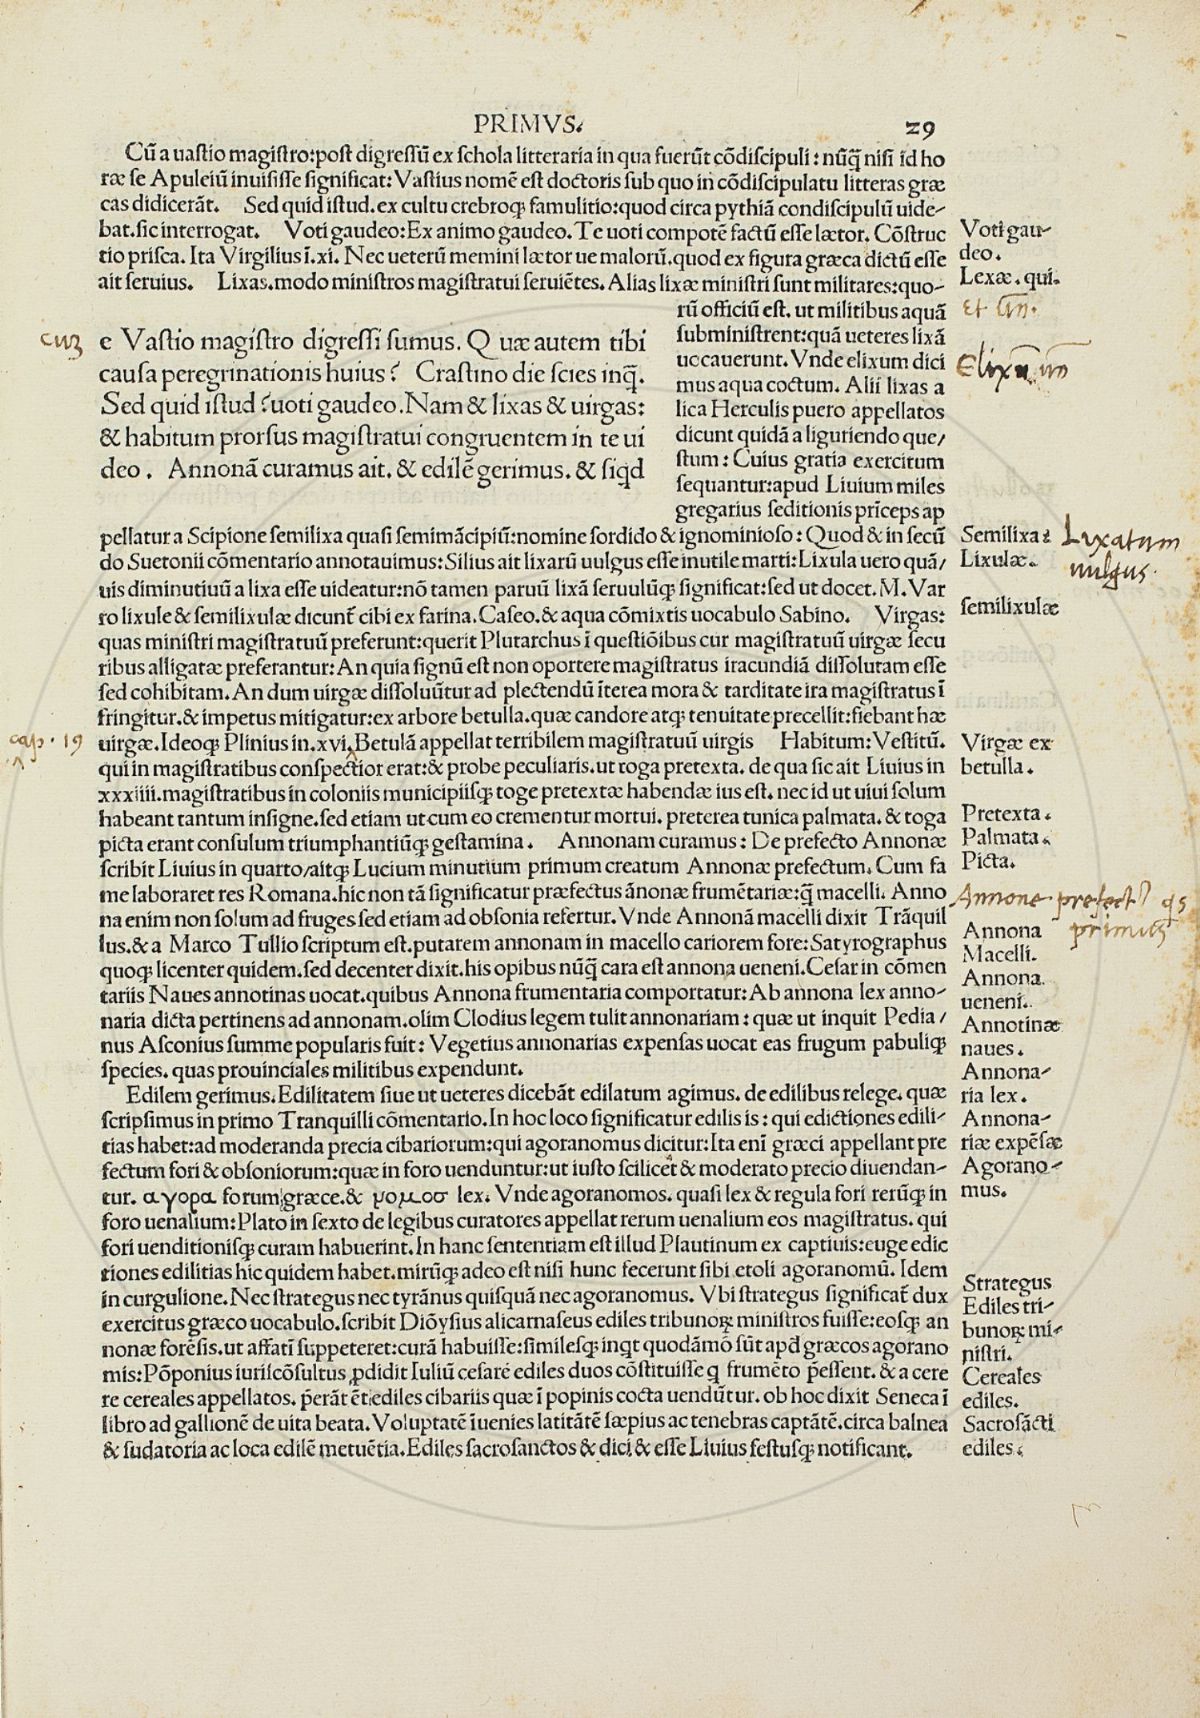 PRIMVS.
29
Cũ a uastio magistro:post digressũ ex schola litteraria in qua fuerũt cõdiscipuli: nũq̃ nisi id ho
ræ se Apuleiũ inuisisse significat: Vastius nomẽ est doctoris sub quo in cõdiscipulatu litteras græ
cas didicerãt. Sed quid istud. ex cultu crebroqꝫ famulitio:quod circa pythiã condiscipulũ uide-
bat. sic interrogat. Voti gaudeo: Ex animo gaudeo. Te uoti compotẽ factũ esse lætor. Cõstruc
tio prisca. Ita Virgilius ĩ. xi. Nec ueterũ memini lætor ue malorũ. quod ex figura græca dictũ esse
ait seruius. Lixas. modo ministros magistratui seruiẽtes. Alias lixæ ministri sunt militares:quo-
rũ officiũ est. ut militibus aquã
subministrent:quã ueteres lixã
uocauerunt. Vnde elixum dici
mus aqua coctum. Alii lixas a
lica Herculis puero appellatos
dicunt quidã a liguriendo que/
stum: Cuius gratia exercitum
sequantur:apud Liuium miles
gregarius seditionis prĩceps ap
cuꝫ
e Vastio magistro digressi sumus. Quæ autem tibi
causa peregrinationis huius? Crastino die scies inq̃.
Sed quid istud? uoti gaudeo. Nam & lixas & uirgas:
& habitum prorsus magistratui congruentem in te ui
deo. Annonã curamus ait. & edilẽ gerimus. & siqd
pellatur a Scipione semilixa quasi semimãcipiũ:nomine sordido & ignominioso: Quod & in secũ
do Suetonii cõmentario annotauimus: Silius ait lixarũ uulgus esse inutile marti: Lixula uero quã/
uis diminutiuũ a lixa esse uideatur:nõ tamen paruũ lixã seruulũqꝫ significat: sed ut docet. M. Var
ro lixule & semilixulæ dicunt̃ cibi ex farina. Caseo. & aqua cõmixtis uocabulo Sabino. Virgas:
quas ministri magistratuũ preferunt: querit Plutarchus ĩ questiõibus cur magistratuũ uirgæ secu
ribus alligatæ preferantur: An quia signũ est non oportere magistratus iracundiã dissolutam esse
sed cohibitam. An dum uirgæ dissoluũtur ad plectendũ ĩterea mora & tarditate ira magistratus ĩ
fringitur. & impetus mitigatur: ex arbore betulla. quæ candore atqꝫ tenuitate precellit: fiebant hæ
cap. 19
uirgæ. Ideoqꝫ Plinius in. xvi. Betulã appellat terribilem magistratuũ uirgis Habitum: Vestitũ.
qui in magistratibus conspectior erat:& probe peculiaris. ut toga pretexta. de qua sic ait Liuius in
xxxiiii. magistratibus in coloniis municipiisqꝫ toge pretextæ habendæ ius est. nec id ut uiui solum
habeant tantum insigne. sed etiam ut cum eo crementur mortui. preterea tunica palmata. & toga
picta erant consulum triumphantiũqꝫ gestamina. Annonam curamus: De prefecto Annonæ
scribit Liuius in quarto/aitqꝫ Lucium minutium primum creatum Annonæ prefectum. Cum fa
me laboraret res Romana. hic non tã significatur præfectus ãnonæ frumẽtariæ:q̃ macelli. Anno
na enim non solum ad fruges sed etiam ad obsonia refertur. Vnde Annonã macelli dixit Trãquil
lus. & a Marco Tullio scriptum est. putarem annonam in macello cariorem fore: Satyrographus
quoqꝫ licenter quidem. sed decenter dixit. his opibus nũq̃ cara est annona ueneni. Cesar in cõmen
tariis Naues annotinas uocat. quibus Annona frumentaria comportatur: Ab annona lex anno-
naria dicta pertinens ad annonam. olim Clodius legem tulit annonariam: quæ ut inquit Pedia/
nus Asconius summe popularis fuit: Vegetius annonarias expensas uocat eas frugum pabuliqꝫ
species. quas prouinciales militibus expendunt.
Edilem gerimus. Edilitatem siue ut ueteres dicebãt edilatum agimus. de edilibus relege. quæ
scripsimus in primo Tranquilli cõmentario. In hoc loco significatur edilis is: qui edictiones edili-
tias habet:ad moderanda precia cibariorum:qui agoranomus dicitur: Ita enĩ græci appellant pre
fectum fori & obsoniorum:quæ in foro uenduntur:ut iusto scilicet & moderato precio diuendan-
tur. αγορα forum græce. & νομοσ lex. Vnde agoranomos. quasi lex & regula fori rerũqꝫ in
foro uenalium: Plato in sexto de legibus curatores appellat rerum uenalium eos magistratus. qui
fori uenditionisqꝫ curam habuerint. In hanc sententiam est illud Plautinum ex captiuis:euge edic
tiones edilitias hic quidem habet. mirũqꝫ adeo est nisi hunc fecerunt sibi etoli agoranomũ. Idem
in curgulione. Nec strategus nec tyrãnus quisquã nec agoranomus. Vbi strategus significat̃ dux
exercitus græco uocabulo. scribit Diõysius alicarnaseus ediles tribunoꝝ ministros fuisse: eosqꝫ an
nonæ forẽsis. ut affati suppeteret: curã habuisse: similesqꝫ inqt quodãmõ sũt apd̃ græcos agorano
mis: Põponius iuriscõsultus ꝓdidit Iuliũ cesarẽ ediles duos cõstituisse q frumẽto p̃essent. & a cere
re cereales appellatos. p̃erãt ẽt ediles cibariis quæ ĩ popinis cocta uendũtur. ob hoc dixit Seneca ĩ
libro ad gallionẽ de uita beata. Voluptatẽ ĩuenies latitãtẽ sæpius ac tenebras captãtẽ. circa balnea
& sudatoria ac loca edilẽ metuẽtia. Ediles sacrosanctos & dici & esse Liuius festusqꝫ notificant.
Voti gau-
deo.
Lexæ. qui.
Semilixa:
Lixulæ.
Lixatam
uulgus.
semilixulæ
Virgæ ex
betulla.
Pretexta.
Palmata.
Picta.
Annone prefect9 qs
primus
Annona
Macelli.
Annona
ueneni.
Annotinæ
naues.
Annona-
ria lex.
Annona-
riæ expẽsæ
Agorano-
mus.
Strategus
Ediles tri-
bunoꝝ mi-
nistri.
Cereales
ediles.
Sacrosãcti
ediles.